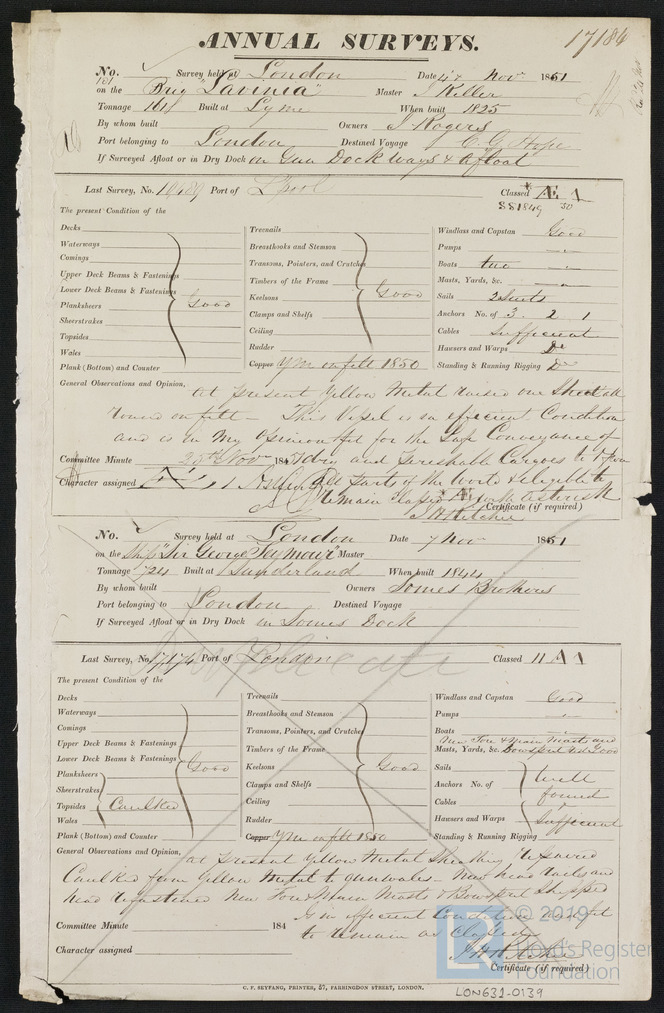 ANNUAL SURVEYS.
17184
No. 161 Survey held at London Date 4, 7 Nov 1851
on the Brig "Lavinia" Master J Keller
Tonnage 161 Built at Lyme When built 1825
By whom built Owners J Rogers
Port belonging to London Destined Voyage C. G. Hope
If Surveyed Afloat or in Dry Dock on Gun Dock ways & afloat
Last Survey, No. Port of Lpool Classed Æ 1
The present Condition of the
Decks
Waterways
Comings
Upper Deck Beams & Fastenings
Lower Deck Beams & Fastenings
Planksheers Good
Sheerstrakes
Topsides
Wales
Plank (Bottom) and Counter
Treenails
Breasthooks and Stemson
Transoms, Pointers, and Crutches
Timbers of the Frame
Keelsons Good
Clamps and Shelfs
Ceiling
Rudder
Copper YM on felt 1850
Windlass and Capstan Good
Pumps
Boats two
Masts, Yards, &c.
Sails 2 Suits
Anchors No. of 3. 2 1
Cables Sufficient
Hausers and Warps Do
Standing & Running Rigging Do
General Observations and Opinion, at present Yellow Metal raised one Sheet all
round on felt - This Vessel is in efficient Condition
and is in My Opinion fit for the Safe Conveyance of
Committee Minute 25th Novr 184 dry and Perishable Cargoes to & from
Character assigned all Parts of the World & eligible to
remain Classed Æ with Asterisk
Certificate (if required)
No. Survey held at London Date 7 Nov 1851
on the Ship "Sir George Seymour" Master
Tonnage 724 Built at Sunderland When built 1844
By whom built Owners Somes Brothers
Port belonging to London Destined Voyage
If Surveyed Afloat or in Dry Dock in Somes Dock
Duplicate
Last Survey, No. 17174 Port of London Classed 11 A 1
The present Condition of the
Decks
Waterways
Comings
Upper Deck Beams & Fastenings
Lower Deck Beams & Fastenings Good
Planksheers
Sheerstrakes
Topsides Caulked
Wales
Plank (Bottom) and Counter
Treenails
Breasthooks and Stemson
Transoms, Pointers, and Crutches
Timbers of the Frame
Keelsons Good
Clamps and Shelfs
Ceiling
Rudder
Copper YM on felt 1850
Windlass and Capstan Good
Pumps
Boats
New Fore & Main Masts and
Masts, Yards, &c Bowsprit Good
Sails well
Anchors No. of found
Cables &
Hausers and Warps Sufficient
Standing & Running Rigging
General Observations and Opinion, at present Yellow Metal Sheathing repaired
Caulked from Yellow Metal to gunwales - New head rails and
head refastened New Fore & Main Masts & Bowsprit Shipped
Is in efficient Condition & fit
Committee Minute 184 to remain as Classed
Character assigned
Certificate (if required)
© 2019
Lloyd's Register
Foundation
C. F. SEYFANG, PRINTER, 57, FARRINGDON STREET, LONDON.
LON632-0139